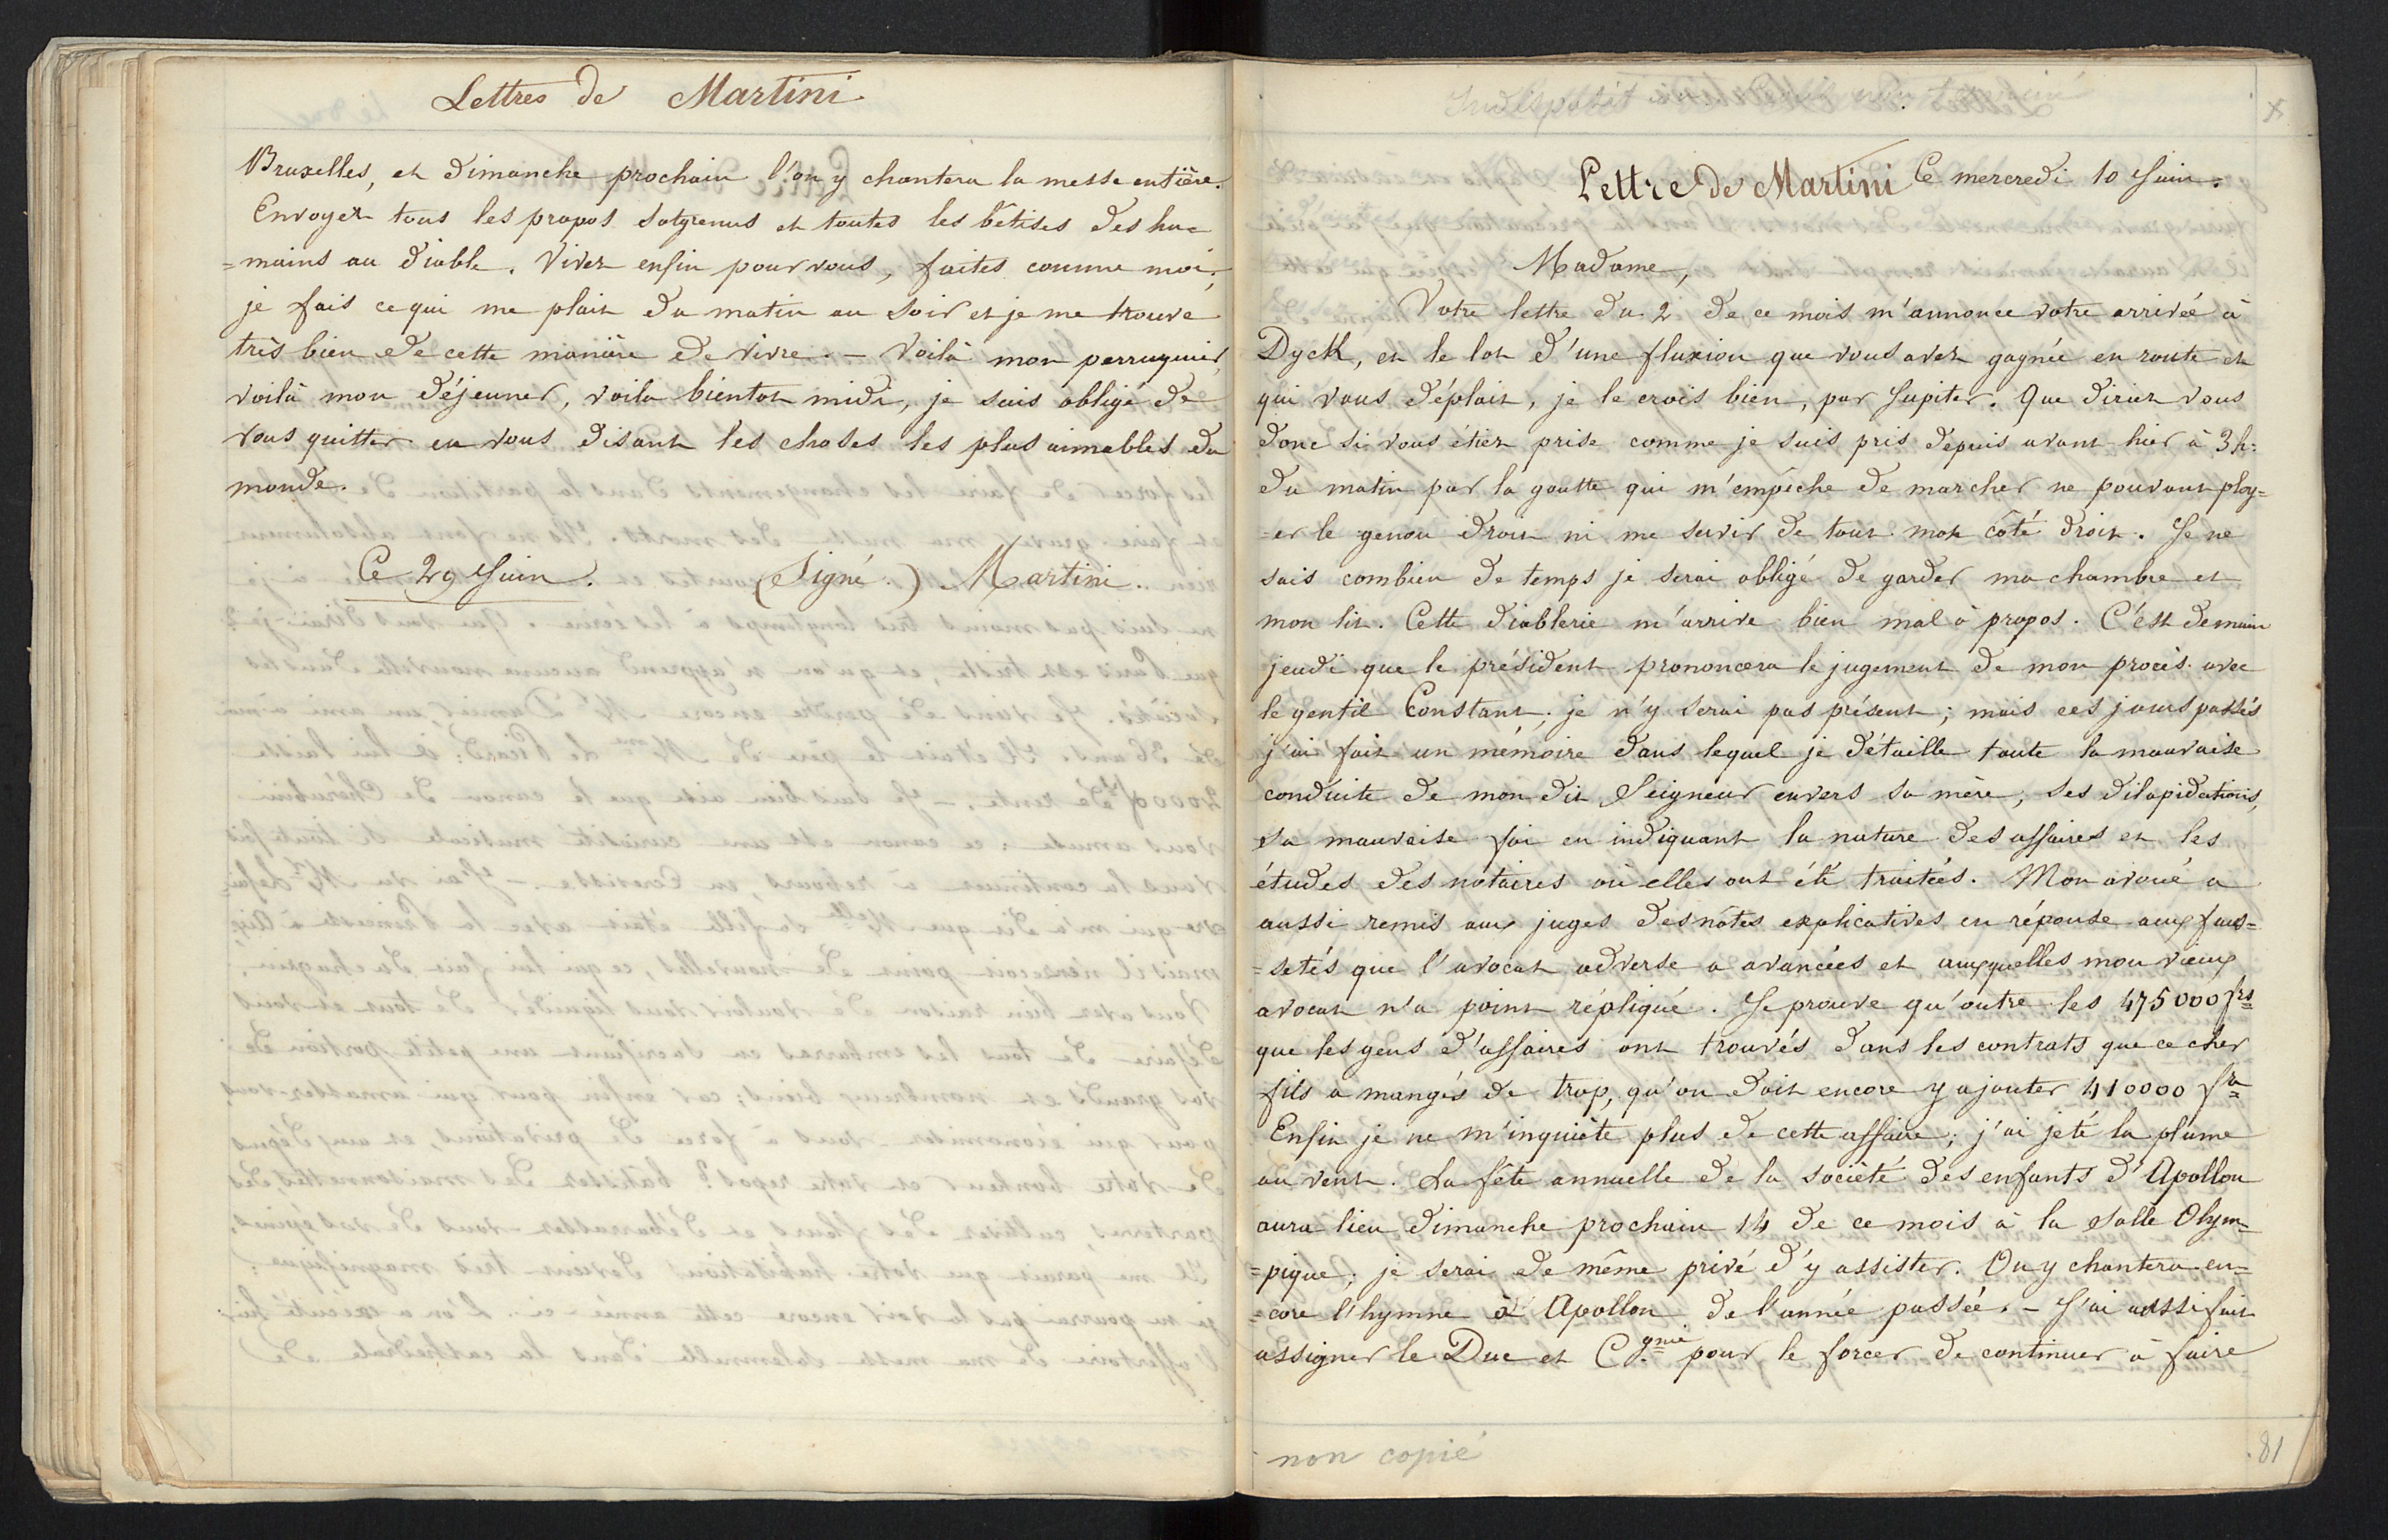 Lettres de Martini
Bruxelles, et dimanche prochain l'on y chantera la messe entière.
Envoyez tous les propos sotgrenus et toutes les bêtises des hu=
=mains au diable. Vivez enfin pour vous, faites comme moi;
je fais ce qui me plait du matin au soir et je me trouve
très bien de cette manière de vivre. — Voilà mon perruquier,
voilà mon déjeuner, voila bientot midi, je suis obligé de
vous quitter en vous disant les choses les plus aimables du
monde.
Ce 29 Juin. (Signé:) Martini.
Lettre de Martini Ce mercredi 10 Juin.
Madame,
Votre lettre du 2 de ce mois m'annonce votre arrivée à
Dyck, et le lot d'une fluxion que vous avez gagnée en route et
qui vous déplait, je le crois bien, par Jupiter. Que diriez vous
donc si vous étiez prise comme je suis pris depuis avant-hier à 3 h:
du matin par la goutte qui m'empêche de marcher ne pouvant ploy=
=er le genou droit ni me servir de tout mon côté droit. Je ne
sais combien de temps je serai obligé de garder ma chambre et
mon lit. Cette diablerie m'arrive bien mal à propos. C'est demain
jeudi que le président prononcera le jugement de mon procès avec
le gentil Constant; je n'y serai pas présent; mais ces jours passés
j'ai fait un mémoire dans lequel je détaille toute la mauvaise
conduite de mon dit Seigneur envers sa mère, ses dilapidations,
sa mauvaise foi en indiquant la nature des affaires et les
études des notaires où elles ont été traitées. Mon avoué a
aussi remis aux juges des nôtes explicatives en réponse aux faus=
=setés que l'avocat adverse a avancées et auxquelles mon vieux
avocat n'a point répliqué. Je prouve qu'outre les 475000 frs
que les gens d'affaires ont trouvés dans les contrats que ce cher
fils a mangés de trop, qu'on doit encore y ajouter 410000 fr
Enfin je ne m'inquiète plus de cette affaire; j'ai jeté la plume
au vent. La fête annuelle de la société des enfants d'Apollon
aura lieu dimanche prochain 14 de ce mois à la salle Olym=
=pique; je serai de même privé d'y assister. On y chantera en=
=core l'hymne à Apollon de l'année passée. — J'ai aussi fait
assigner le Duc et Cgnie pour le forcer de continuer à faire
non copié
81